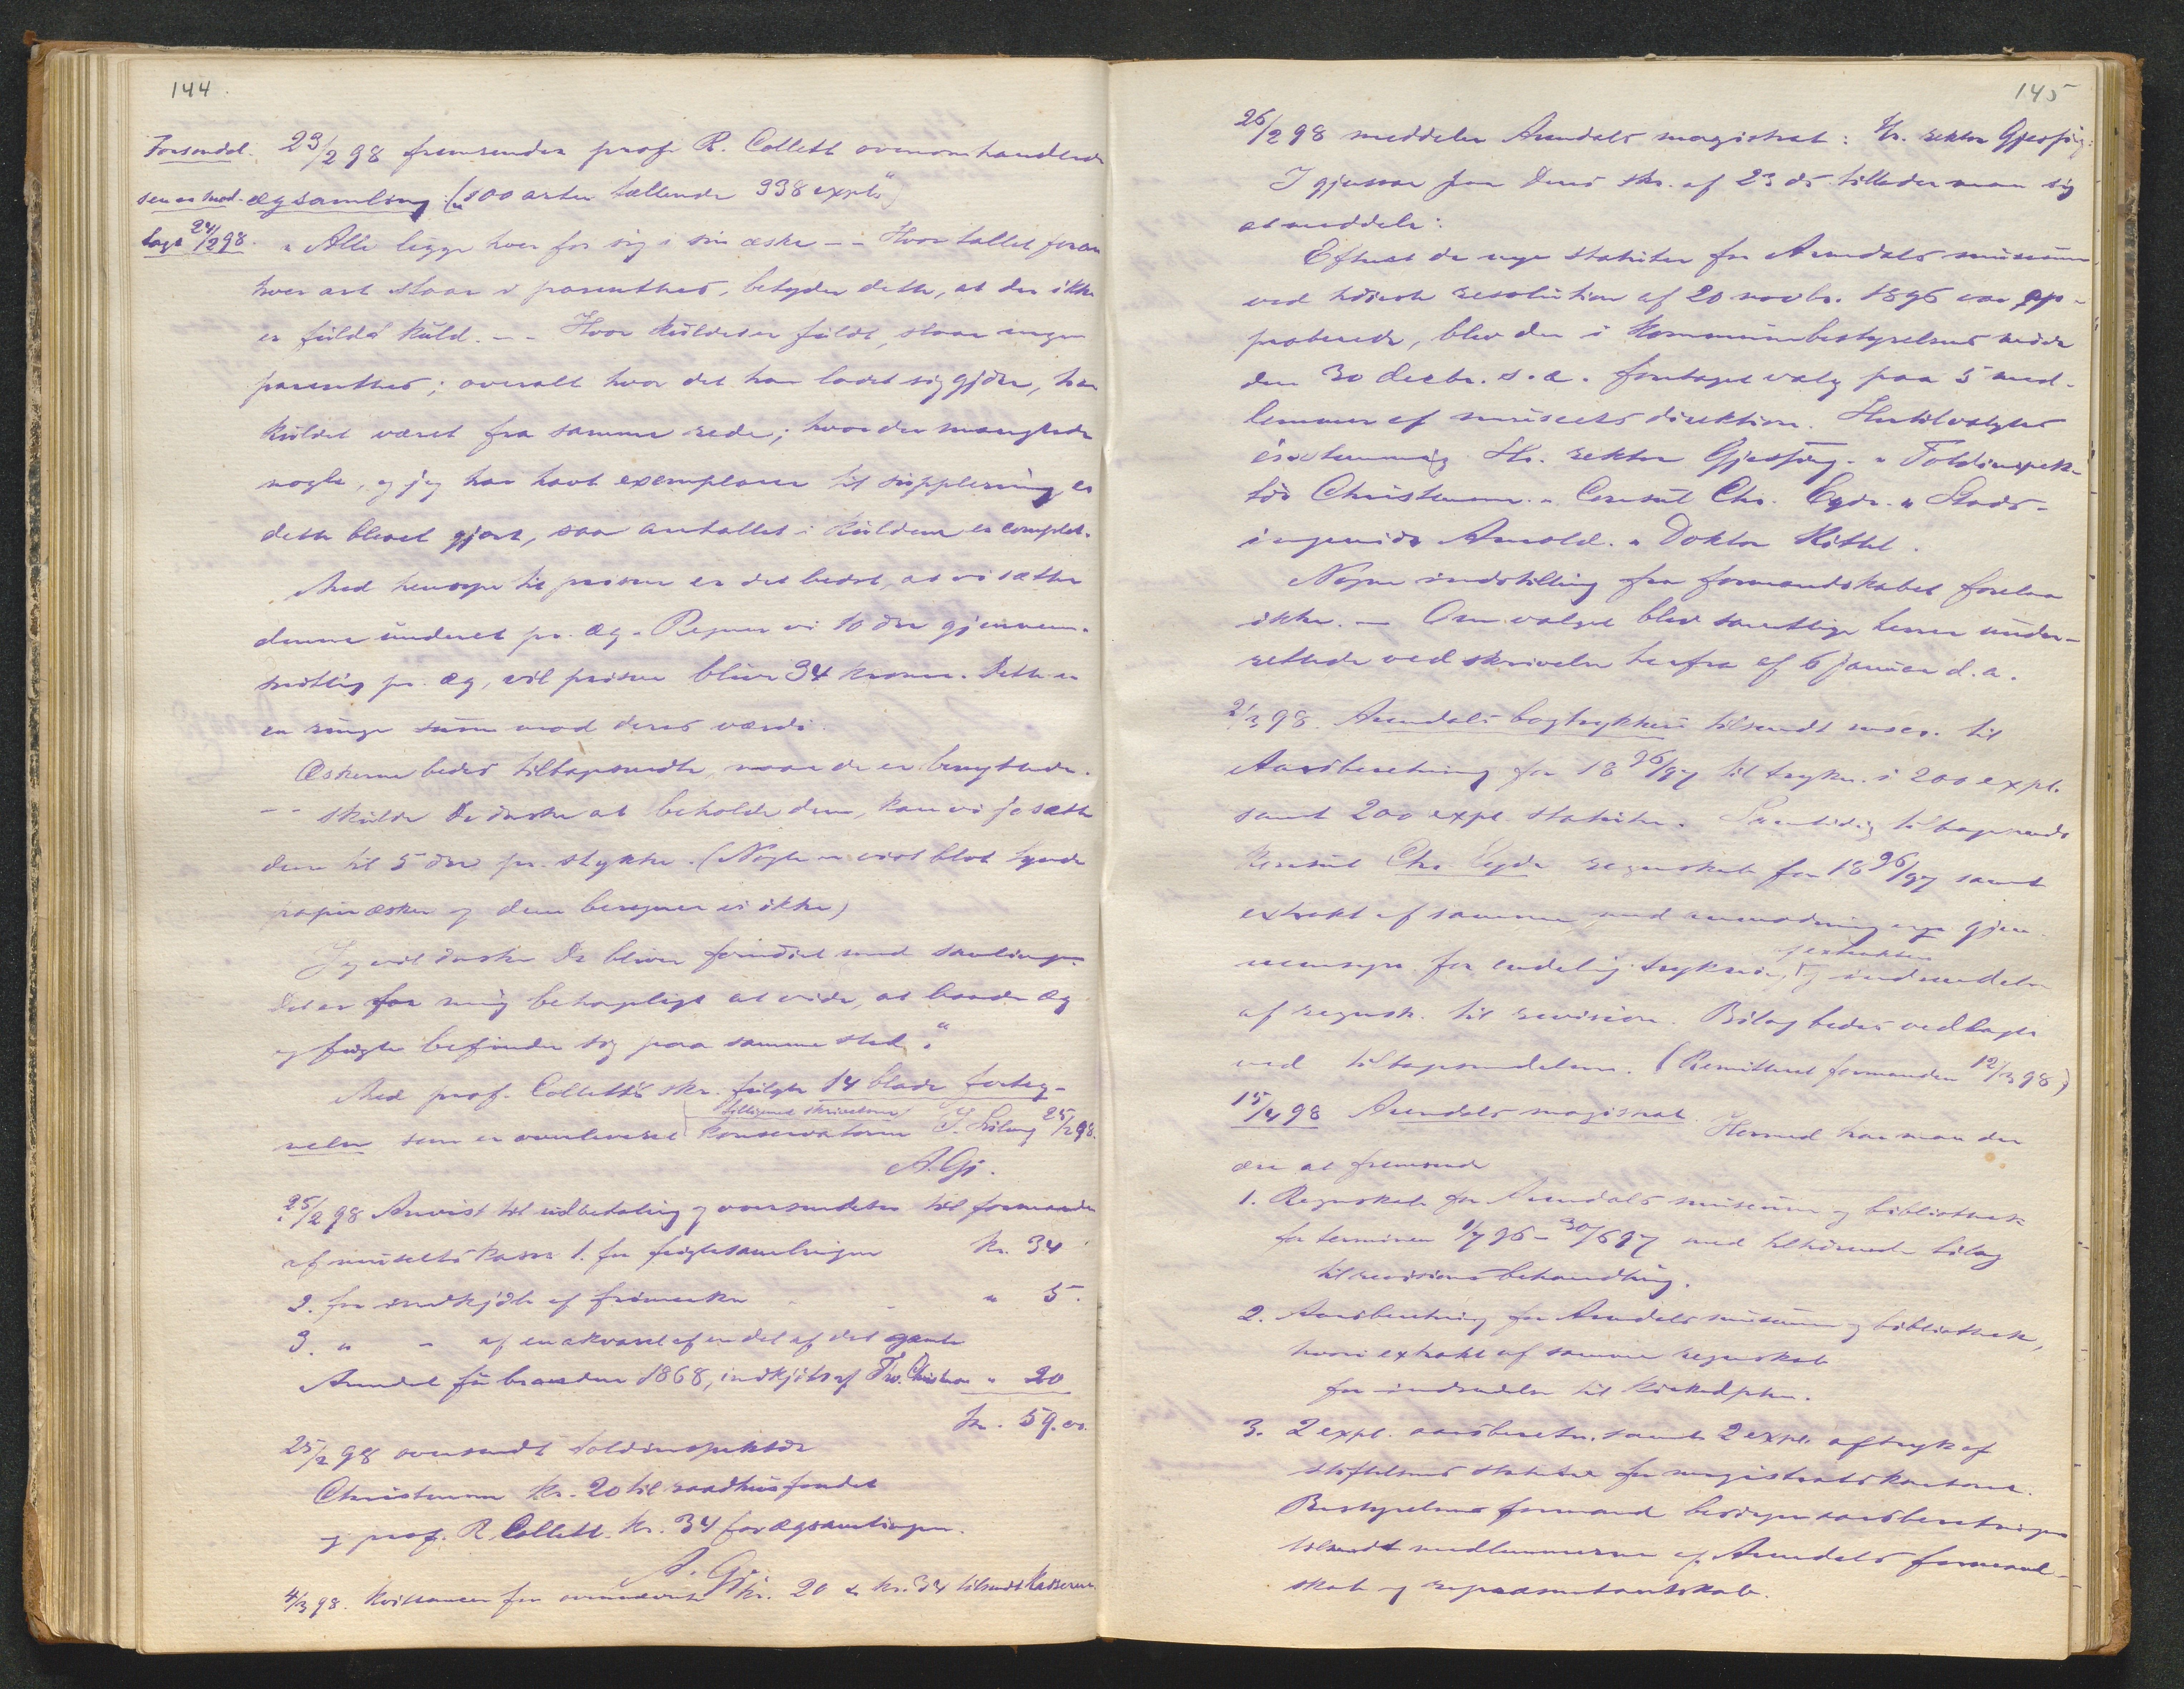 144.
Forsendel- 23/2 98 fremsender prof. R. Collett ovenomhandlede
sen er mod- ægsamling („100 arter tællende 338 expl.“)
taget 24/2 98. „Alle ligge hver for sig i sin æske - - Hvor tallet foran
hver art staar i parenthes, betyder dette, at der ikke
er fuldt kuld. - - Hvor kuldet er fuldt, staar ingen
parenthes; overalt hvor det har ladet sig gjøre, har
kuldet været fra samme rede; hvor der manglede
nogle, og jeg har havt exemplarer til supplering, er
dette blevet gjort, saa antallet i kuldene er complet.
Med hensyn til prisen er det bedst, at vi sætter
denne under et pr. æg. Regner vi 10 øre gjennem-
snitlig pr. æg, vil prisen blive 34 kroner. Dette er
en ringe sum mod deres værdi.
Æskerne bedes tilbagesendte, naar de er benyttede.
- - skulde De ønske at beholde dem, kan vi jo sætte
dem til 5 øre pr. stykke. (Nogle er vist blot tynde
papiræsker og dem beregner vi ikke)
Jeg vil ønske De bliver fornøiet med samlingen.
Det er for mig behageligt at vide, at baade æg
og fugle befinder sig paa samme sted.“
Med prof. Collett's skr. fulgte 14 blade forteg-
tilligemed skrivelsen
nelse som er overleveret konservatoren 25/2 98.
A. Gj.
25/2 98 Anvist til udbetaling og oversendelse til formanden
af museets kasse 1. for fuglesamlingen kr. 34
2. for indkjøb af frimerker " 5.
3. " - af en akvarel af en del af det gamle
Arendal før branden 1868, indkjøbt af Christensen " 20
kr. 59.00.
25/2 98 oversendt toldinspektør
Christensen kr. 20 til raadhusfondet
og prof. R. Collett kr. 34 for ægsamlingen.
A. Gj.
4/3 98. Kvittancer for ovennævnte kr. 20 & kr. 34 tilsendt kassereren
145
26/2 98 meddeler Arendals magistrat: Hr. rektor Gjessing:
I gjensvar paa Deres skr. af 23 ds. tillader man sig
at meddele:
Efterat de nye statuter for Arendals museum
ved høieste resolution af 20 novbr. 1896 var ap-
proberede, blev der i kommunebestyrelsens møde
den 30 decbr. s. a. foretaget valg paa 5 med-
lemmer af museets direktion. Hertil valgtes
énstemmig Hr. rektor Gjessing. " Toldinspek-
tør Christensen. " Consul Chr. Eyde. " Stads-
ingeniør Arnold. " Doktor Kittel.
Nogen indstilling fra formandskabet forelaa
ikke. — Om valget blev samtlige herrer under-
rettede ved skrivelse herfra af 6 januar d. a.
2/3 98. Arendals bogtrykkeri tilsendt mscr. til
Aarsberetning for 1896/97 til trykn. i 200 expl.
samt 200 expl. statuter. Samtidig tilbagesendt
konsul Chr. Eyde regnskab for 1896/97 samt
extrakt af samme med anmodning om gjen-
af extrakten
nemsyn før endelig trykning og indsendelse
af regnsk. til revision. Bilag bedes vedlagte
ved tilbagesendelsen. (Remitteret formanden 12/3 98)
15/4 98 Arendals magistrat. Hermed har man den
ære at fremsende
1. Regnskab for Arendals museum og bibliothek
for terminen 1/7 96 - 30/6 97 med tilhørende bilag
til revisionsbehandling.
2. Aarsberetning for Arendals museum og bibliothek,
hvori extrakt af samme regnskab
for indsendelse til kirkedpten.
3. 2 expl. aarsberetn. samt 2 expl. aftryk af
stiftelsens statuter for magistratskontoret.
Bestyrelsens formand besørger aarsberetningen
tilsendt medlemmerne af Arendals formand-
skab og repræsentantskab.